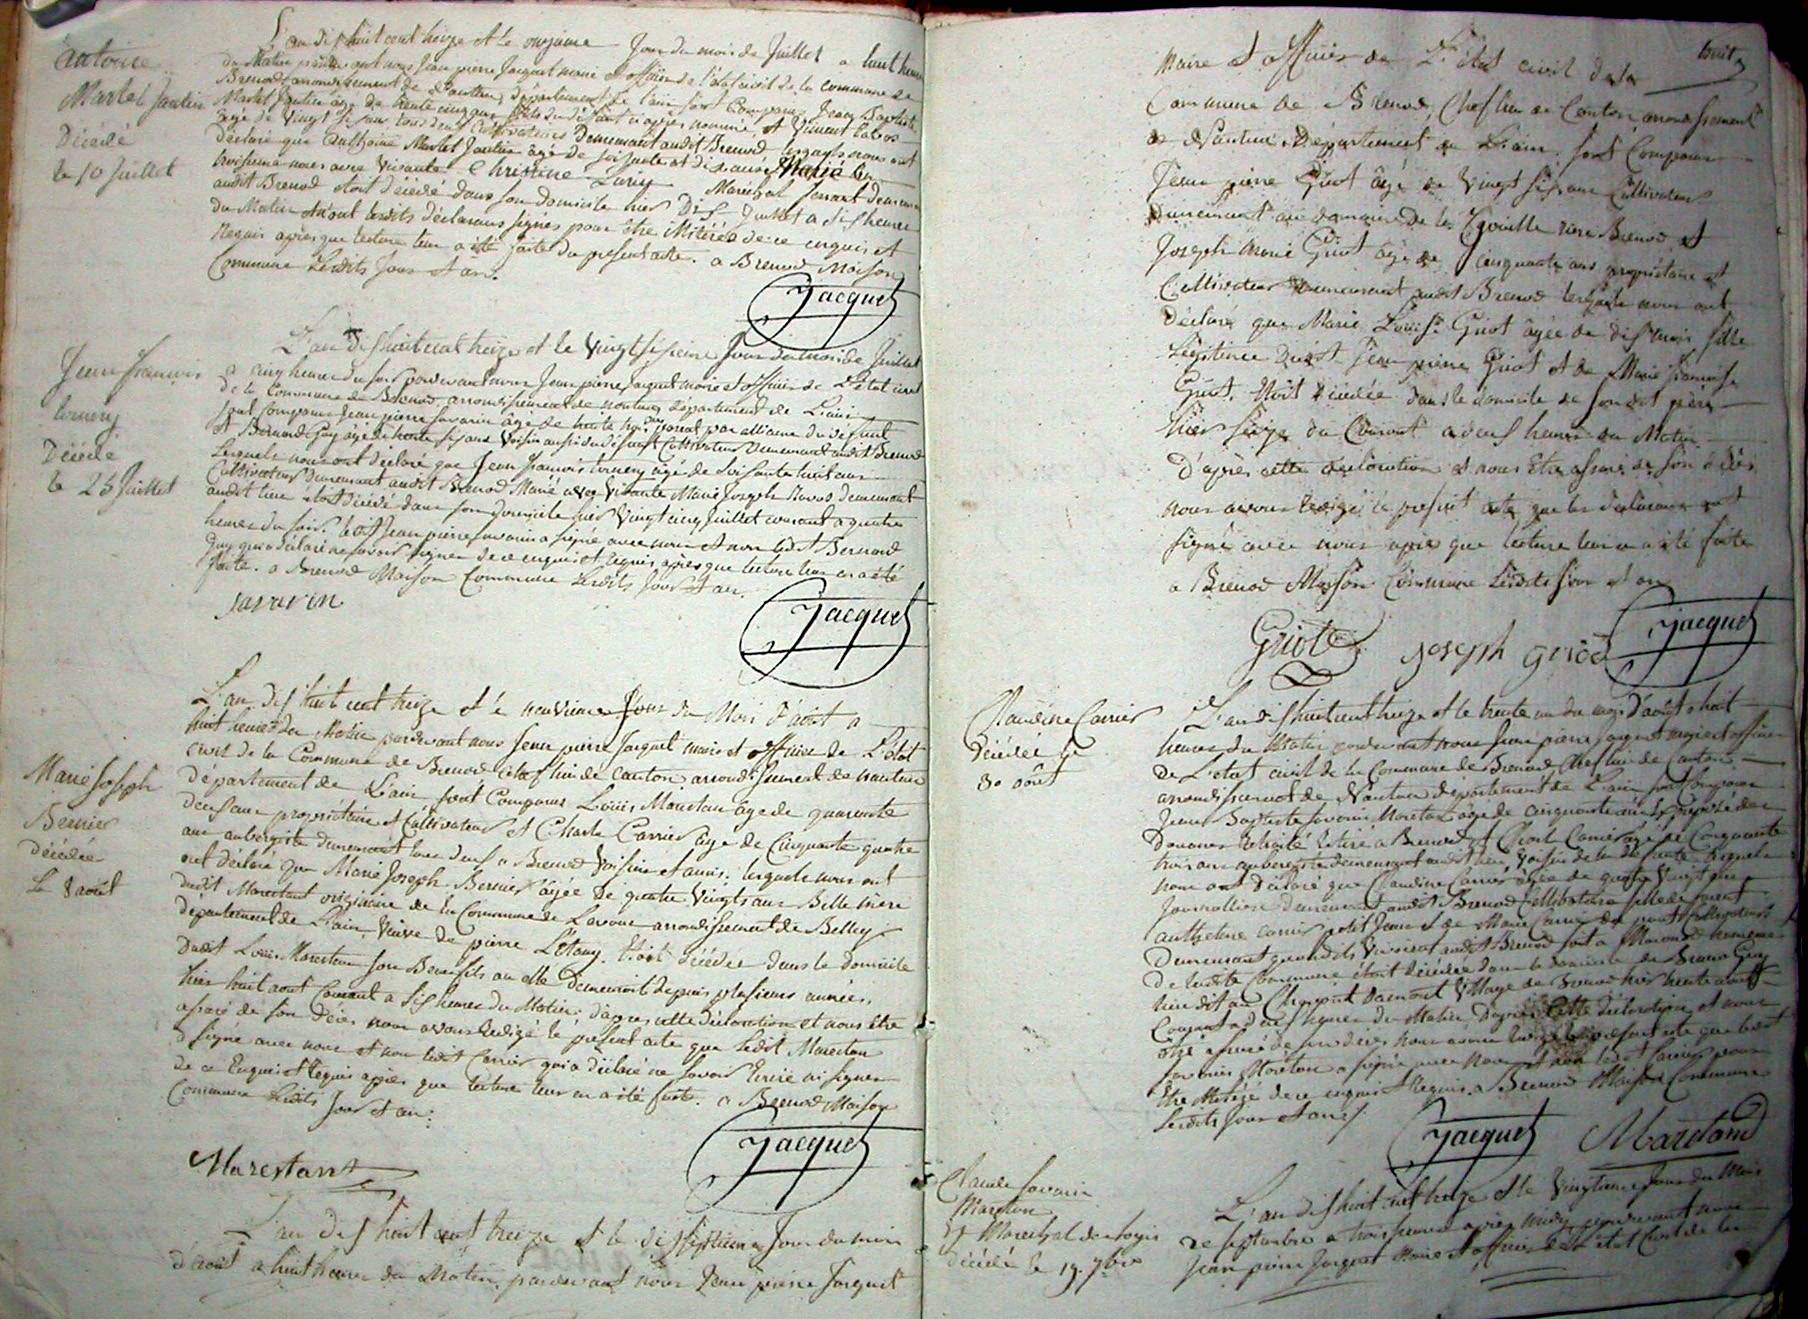 Antoine
Martel Jantin
Décédé
le 10 Juillet
L'an dix huit cent treize et le onzieme Jour du mois de Juillet a huit heures
du Matin pardevant nous Jean pierre Jacquet maire et officier de l'etat civil de la commune de
Brenod arrondissement de Nantua, département de l'ain sont Comparus Jean Baptiste
Martel Jantin âgé de trente cinq ans fils du défunt ci après nommé, et Vincent
âgé de vingt six ans tous deux Cultivateurs Demeurant audit Brenod lesquels nous ont
déclaré que Anthoine Martel Jantin âgé de soixante et dix ans Marié en
troisieme noces avec vivante Christine
audit Brenod étoit décédé dans son domicile hier Dix Juillet a six heures
du Matin et n'ont lesdits déclarans signés pour être illitérés de ce enquis et
Requis après que lecture leur a été faite du présent acte. a Brenod Maison
Commune Lesdits Jour et an.
Jacquet
Jean François
Décédé
le 25 Juillet
L'an dix huit cent treize et le Vingt sixieme Jour du mois de Juillet
a cinq heures du soir pardevant nous Jean pierre Jacquet maire et officier de l'état civil
de la Commune de Brenod arrondissement de nantua, département de L'ain
sont comparus Jean pierre Savarin âgé de trente par alliance du défunt
et Bernard Guy âgé de trente six ans Voisin aussi du défunt Cultivateurs Demeurant audit Brenod
Lesquels nous ont déclaré que Jean François âgé de soixante huit ans
Cultivateur demeurant audit Brenod Marié avec Vivante Marie Joseph demeurant
audit lieu étoit décédé dans son domicile hier Vingt cinq Juillet courant a quatre
heures du soir. ledit Jean pierre Savarin a signé avec nous et non ledit Bernard
Guy qui a déclaré ne savoir signer de ce enquis et requis après que lecture leur en a été
faite. a Brenod Maison Commune Lesdits Jour et an.
savarin
Jacquet
Marie Joseph
Bernier
Décédée
le 8 août
L'an dix huit cent treize et le neuvieme Jour du Mois d'août a
huit heures du Matin pardevant nous Jean pierre Jacquet maire et officier de L'état
civil de la Commune de Brenod chef lieu de canton arrondissement de nantua
département de L'ain sont Comparus Louis Marestan âgé de quarante
deux ans propriétaire et Cultivateur et Charle Carrier âgé de Cinquante quatre
ans aubergiste demeurant tous deux a Brenod Voisins et amis. lesquels nous ont
déclaré que Marie Joseph Bernier âgée de quatre Vingts ans Belle mere
dudit Marestant originaire de la Commune de Lavour arrondissement de Belley
département de l'ain, Veuve de pierre L'étang. Etoit décédée dans le domicile
Dudit Louis Marestan son Beau fils ou elle demeuroit depuis plusieurs années.
hier huit aout Courant a six heures du Matin; d'après cette déclaration et nous être
assuré de son décès nous avons Redigé le présent acte que ledit Marestan
a signé avec nous et non ledit Carrier qui a déclaré ne savoir Ecrire ni signer
de ce Enquis et Requis après que lecture leur en a été faite. a Brenod Maison
Commune Lesdits Jour et an.
Marestant
Jacquet
L'an dix huit cent treize et le dixseptieme Jour du mois
d'août a huit heures du Matin pardevant nous Jean pierre Jacquet
huit
Maire et officier de L'état civil de la
Commune de Brenod, Chef lieu de Canton arrondissement
de Nantua Département de L'ain. sont Comparus
Jean pierre Griot âgé de Vingt six ans Cultivateur
Demeurant au domaine de la rière Brenod et
Joseph Marie Griot âgé de cinquante ans propriétaire et
Cultivateur Demeurant audit Brenod lesquels nous ont
déclaré que Marie Louise Griot âgée de dix mois fille
Légitime dudit Jean pierre Griot et de Marie Françoise
Griot. Etoit décédée dans le domicile de son dit père
hier seize du Courant a deux heures du Matin
D'après cette déclaration et nous être assuré de son décès
nous avons redigé le présent acte que les déclarans ont
signé avec nous après que lecture leur en a été faite
a Brenod Maison Commune Lesdits Jour et an
Griot
Joseph griod
Jacquet
Claudine Carrier
décédée le
30 août
L'an dix huit cent treize et le trente un du mois d'août a huit
heures du Matin pardevant nous Jean pierre Jacquet maire et officier
de L'état civil de la Commune de Brenod Chef lieu de Canton
arrondissement de Nantua département de L'ain sont comparus
Jean Baptiste Savarin Moretan âgé de cinquante Préposé des
Douanes retiré a Brenod et Charle Carrier âgé de Cinquante
trois ans aubergiste demeurant audit lieu Voisins de la défunte Lesquels
nous ont Déclaré que Claudine Carrier âgée de quatre Vingt
Journalliere demeurant audit Brenod Célibataire fille de
anthelme carrier petit Jean et de Marie Carrier
Demeurant quand ils vivoient audit Brenod
De ladite Commune étoit décédée dans le domicile de Guy
lieu dit au Village de Brenod hier trente août
Courant a deux heures du Matin. D'après cette déclaration et nous
être assuré de son décès nous avons redigé le présent acte que ledit
Savarin Moretan a signé avec nous et non ledit Carrier pour
être illitéré de ce enquis et Requis. a Brenod Maison Commune
Lesdits Jour et an
Jacquet
Claude Savarin
Maréchal des Logis
décédé le 19. 7bre
L'an dix huit cent treize et le Vingtieme Jour du Mois
de septembre a trois heures après midy pardevant nous
Jean pierre Jacquet Maire et officier de l'état Civil de la